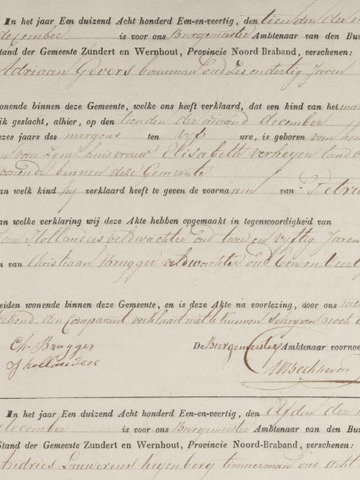 In het jaar Een duizend Acht honderd Een-en-veertig, den tienden der m
december is voor ons Burgemeester Ambtenaar van den Bur
Stand der Gemeente Zundert en Wernhout, Provincie Noord-Braband, verschenen:
Adriaan Gevers bouwman oud zes en dertig Jaren
wonende binnen deze Gemeente, welke ons heeft verklaard, dat een kind van het man
ijk geslacht, alhier, op den tienden der maand december
dezes jaars des morgens ten vijf ure, is geboren van hem
en van zijne huisvrouw Elisabeth verheyen land
wonende binnen deze Gemeente
aan welk kind hij verklaard heeft te geven de voornaam van Petrus
van welke verklaring wij deze Akte hebben opgemaakt in tegenwoordigheid van
Jan Hollanders veldwachter oud twee en vijftig Jaren
en van Christiaan Brugger veldwachter oud een en
beiden wonende binnen deze Gemeente, en is deze Akte na voorlezing, door ons
den Comparant verklaart niet te kunnen schrijven noch
Ch. Brugger De Burgemeester Ambtenaar voornoe
J hollanders
In het jaar Een duizend Acht honderd Een-en-veertig, den Elfden der m
december is voor ons Burgemeester Ambtenaar van den Bur
Stand der Gemeente Zundert en Wernhout, Provincie Noord-Braband, verschenen:
Andries Lauwerens heyenberg timmerman oud acht